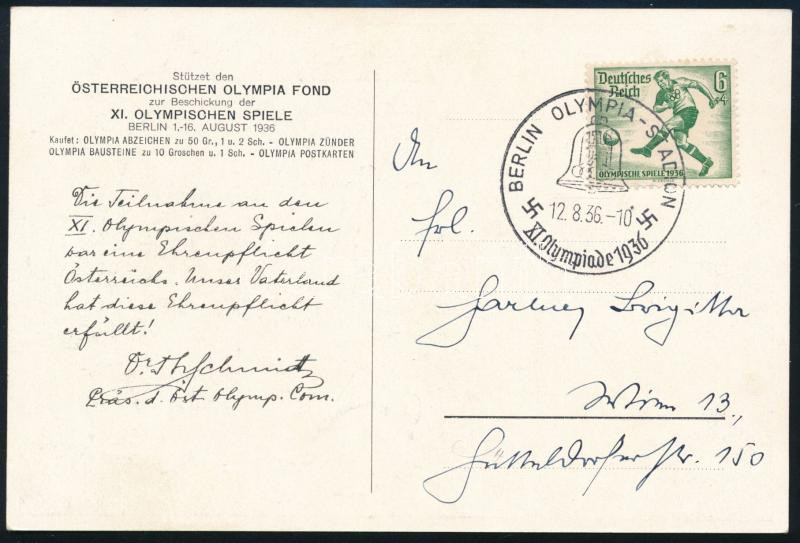 Stützet den
ÖSTERREICHISCHEN OLYMPIA FOND
zur Beschickung der
XI. OLYMPISCHEN SPIELE
BERLIN 1.-16. AUGUST 1936
Kaufet: OLYMPIA ABZEICHEN zu 50 Gr., 1 u. 2 Sch. - OLYMPIA ZÜNDER
OLYMPIA BAUSTEINE zu 10 Groschen u. 1 Sch. - OLYMPIA POSTKARTEN
Die Teilnahme an den
XI. Olympischen Spielen
war eine Ehrenpflicht
Österreichs. Unser Vaterland
hat diese Ehrenpflicht
erfüllt!
Dr. Th Schmidt
Präs. d. Öst. Olymp. Com.
Deutsches
Reich
6
+4
OLYMPISCHE SPIELE 1936
BERLIN OLYMPIA-STADION
12.8.36.-10
XI. Olympiade 1936
An
Frl.
Brigitta
Wien 13.,
Hütteldorferstr. 150